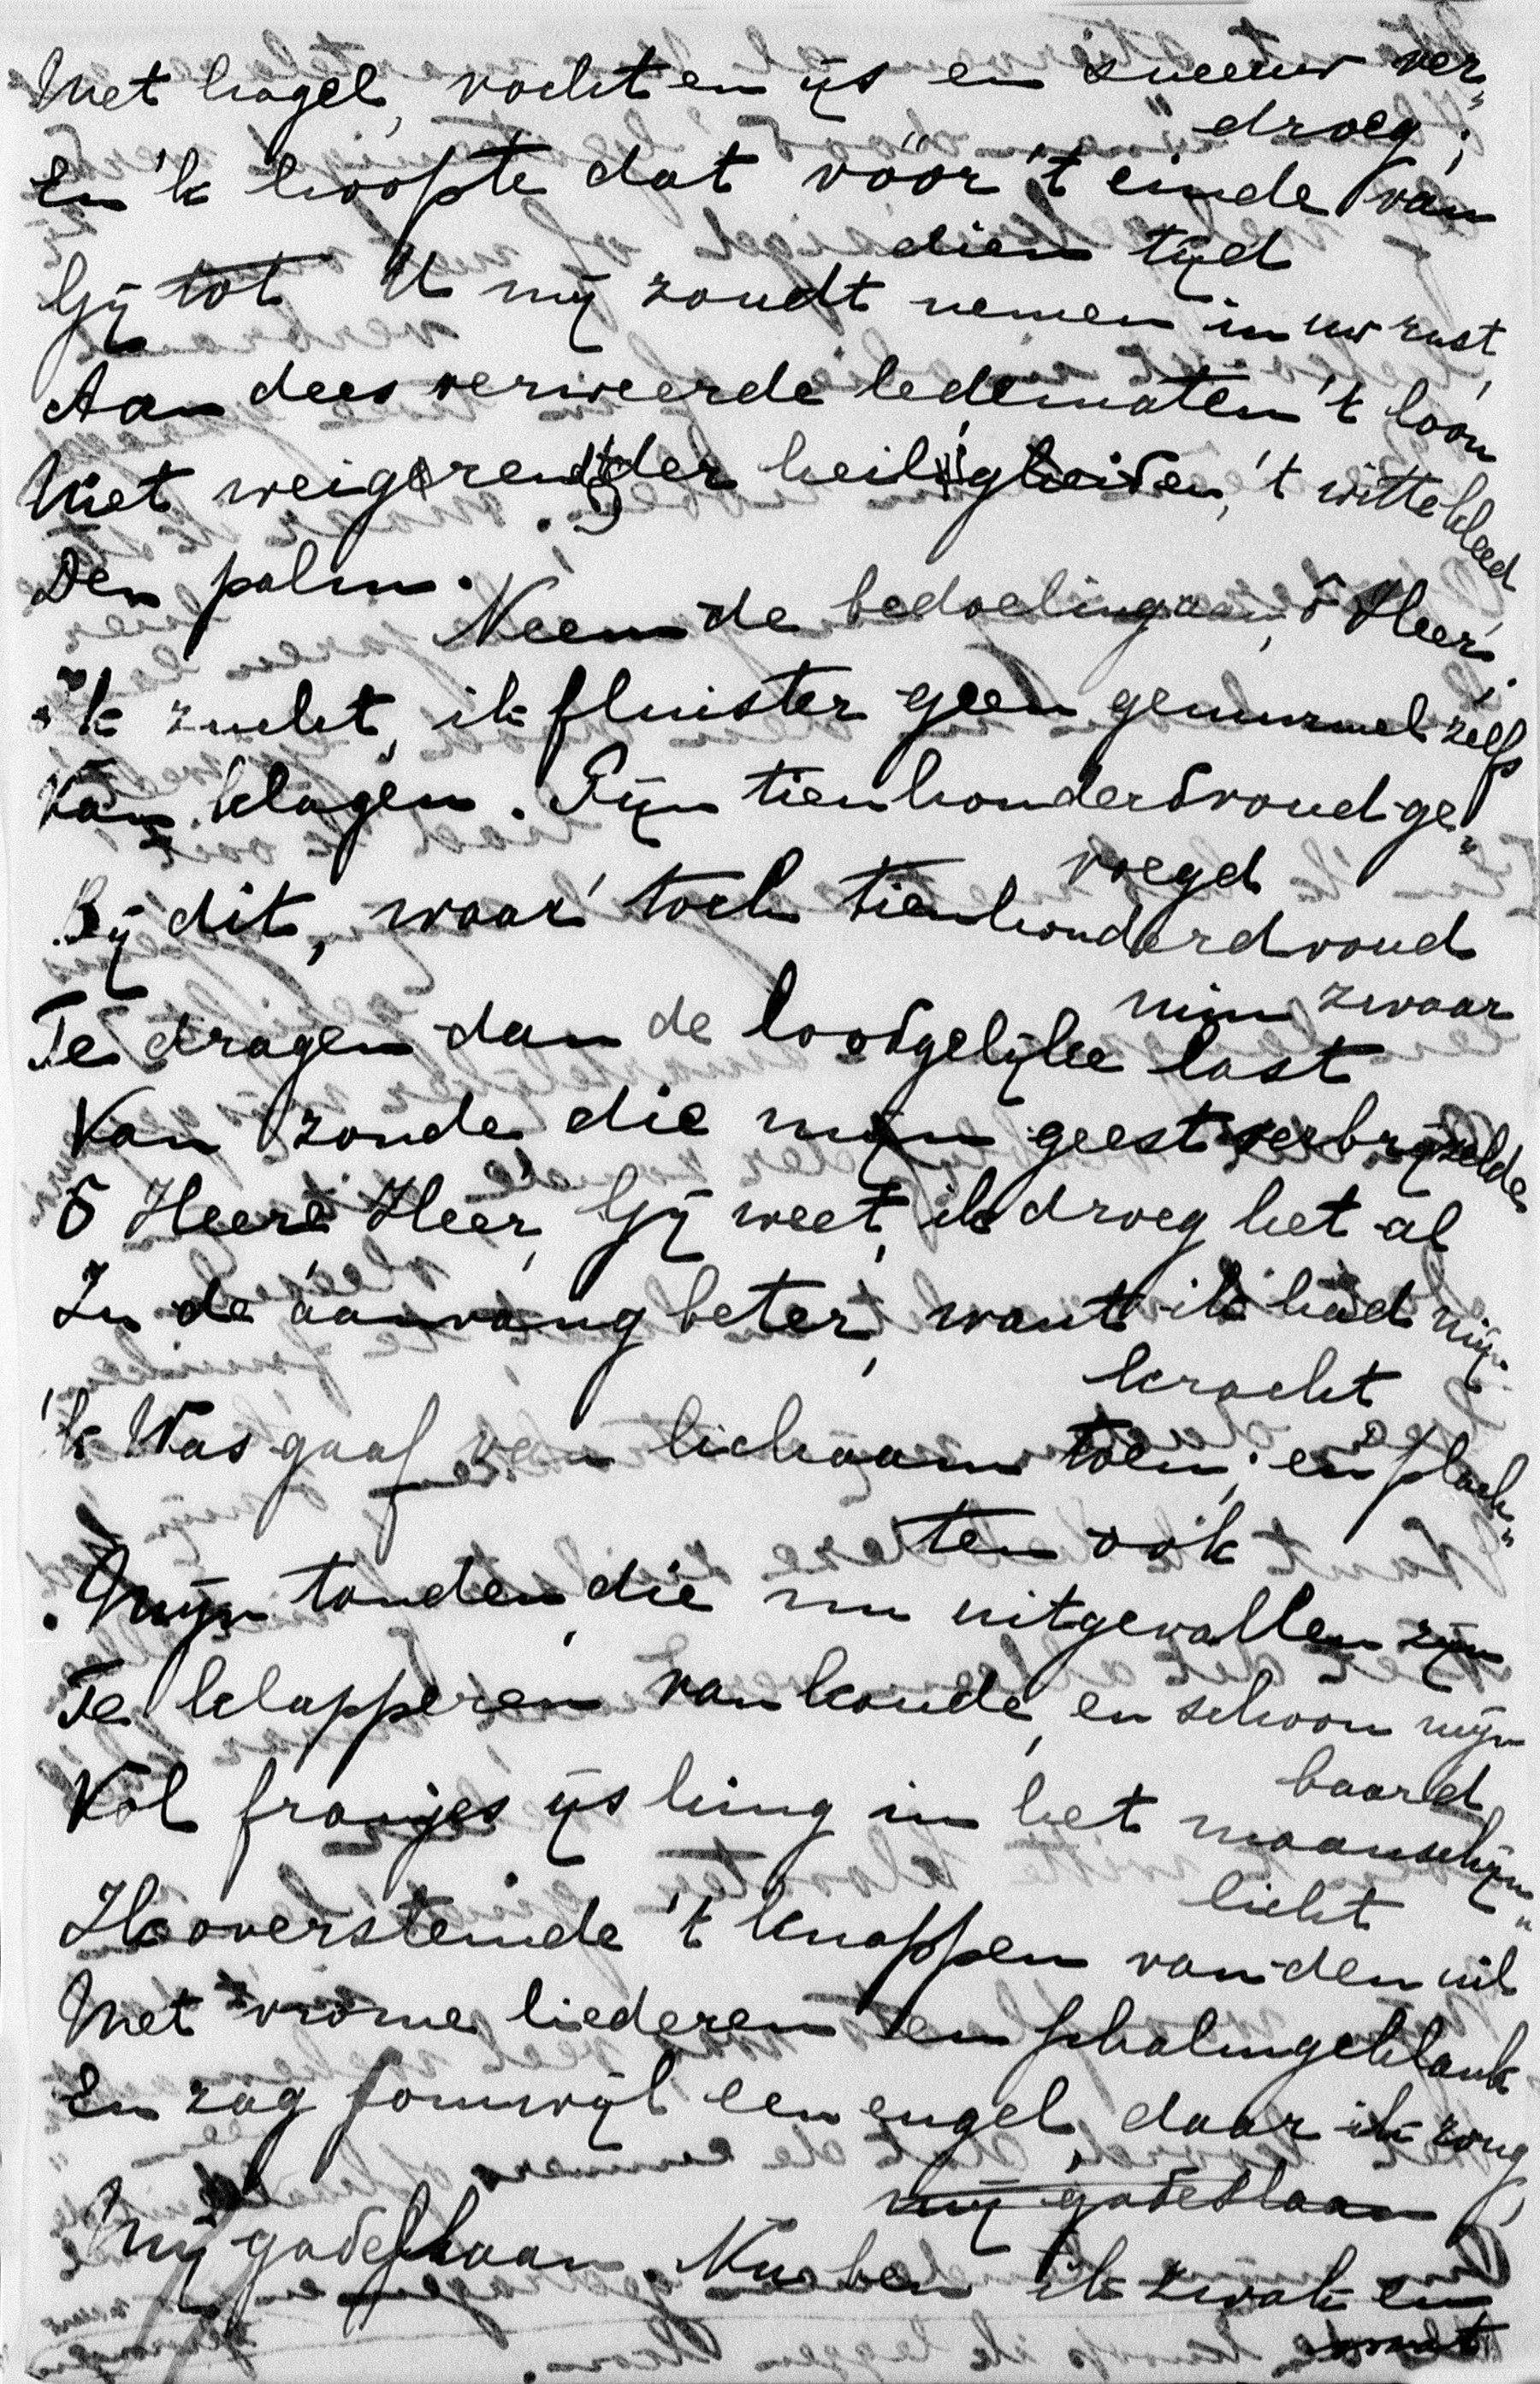 Met hagel, vocht en ijs en sneeuw ver„
droeg;
En 'k hoopte dat vóór 't einde van
dien tijd
Gij tot U mij zoudt nemen in uw rust,
Aan dees verweerde ledematen 't loon
Niet weigrend der heiligheiden, 't witte kleed
Den palm.
Neem de bedoeling aan, ô Heer;
'k zucht, ik fluister geen gemurmel zelfs
Van klagen. Pijn tienhonderdvoud ge„
voegd
Bij dit, waar' toch tienhonderdvoud
min zwaar
Te dragen dan de loodgelijke last
Van zonde die mijn geest verbrijzelde
ô Heere Heer, Gij weet, ik droeg het al
In de aanvang beter, want ik had mijn
kracht
'k Was gaaf van lichaam toen; en plach„
ten ook
Mijn tanden, die nu uitgevallen zijn
Te klapperen van koude, en schoon mijn
baard
Vol franjes ijs hing in het maanschijn„
licht
Ik overstemde 't knappen van den uil
Met vrome liederen en psalmgeklank
En zag somwijl een engel, daar ik zong,
mij gadeslaan
Mij gadeslaan. Nu ben ik zwak en